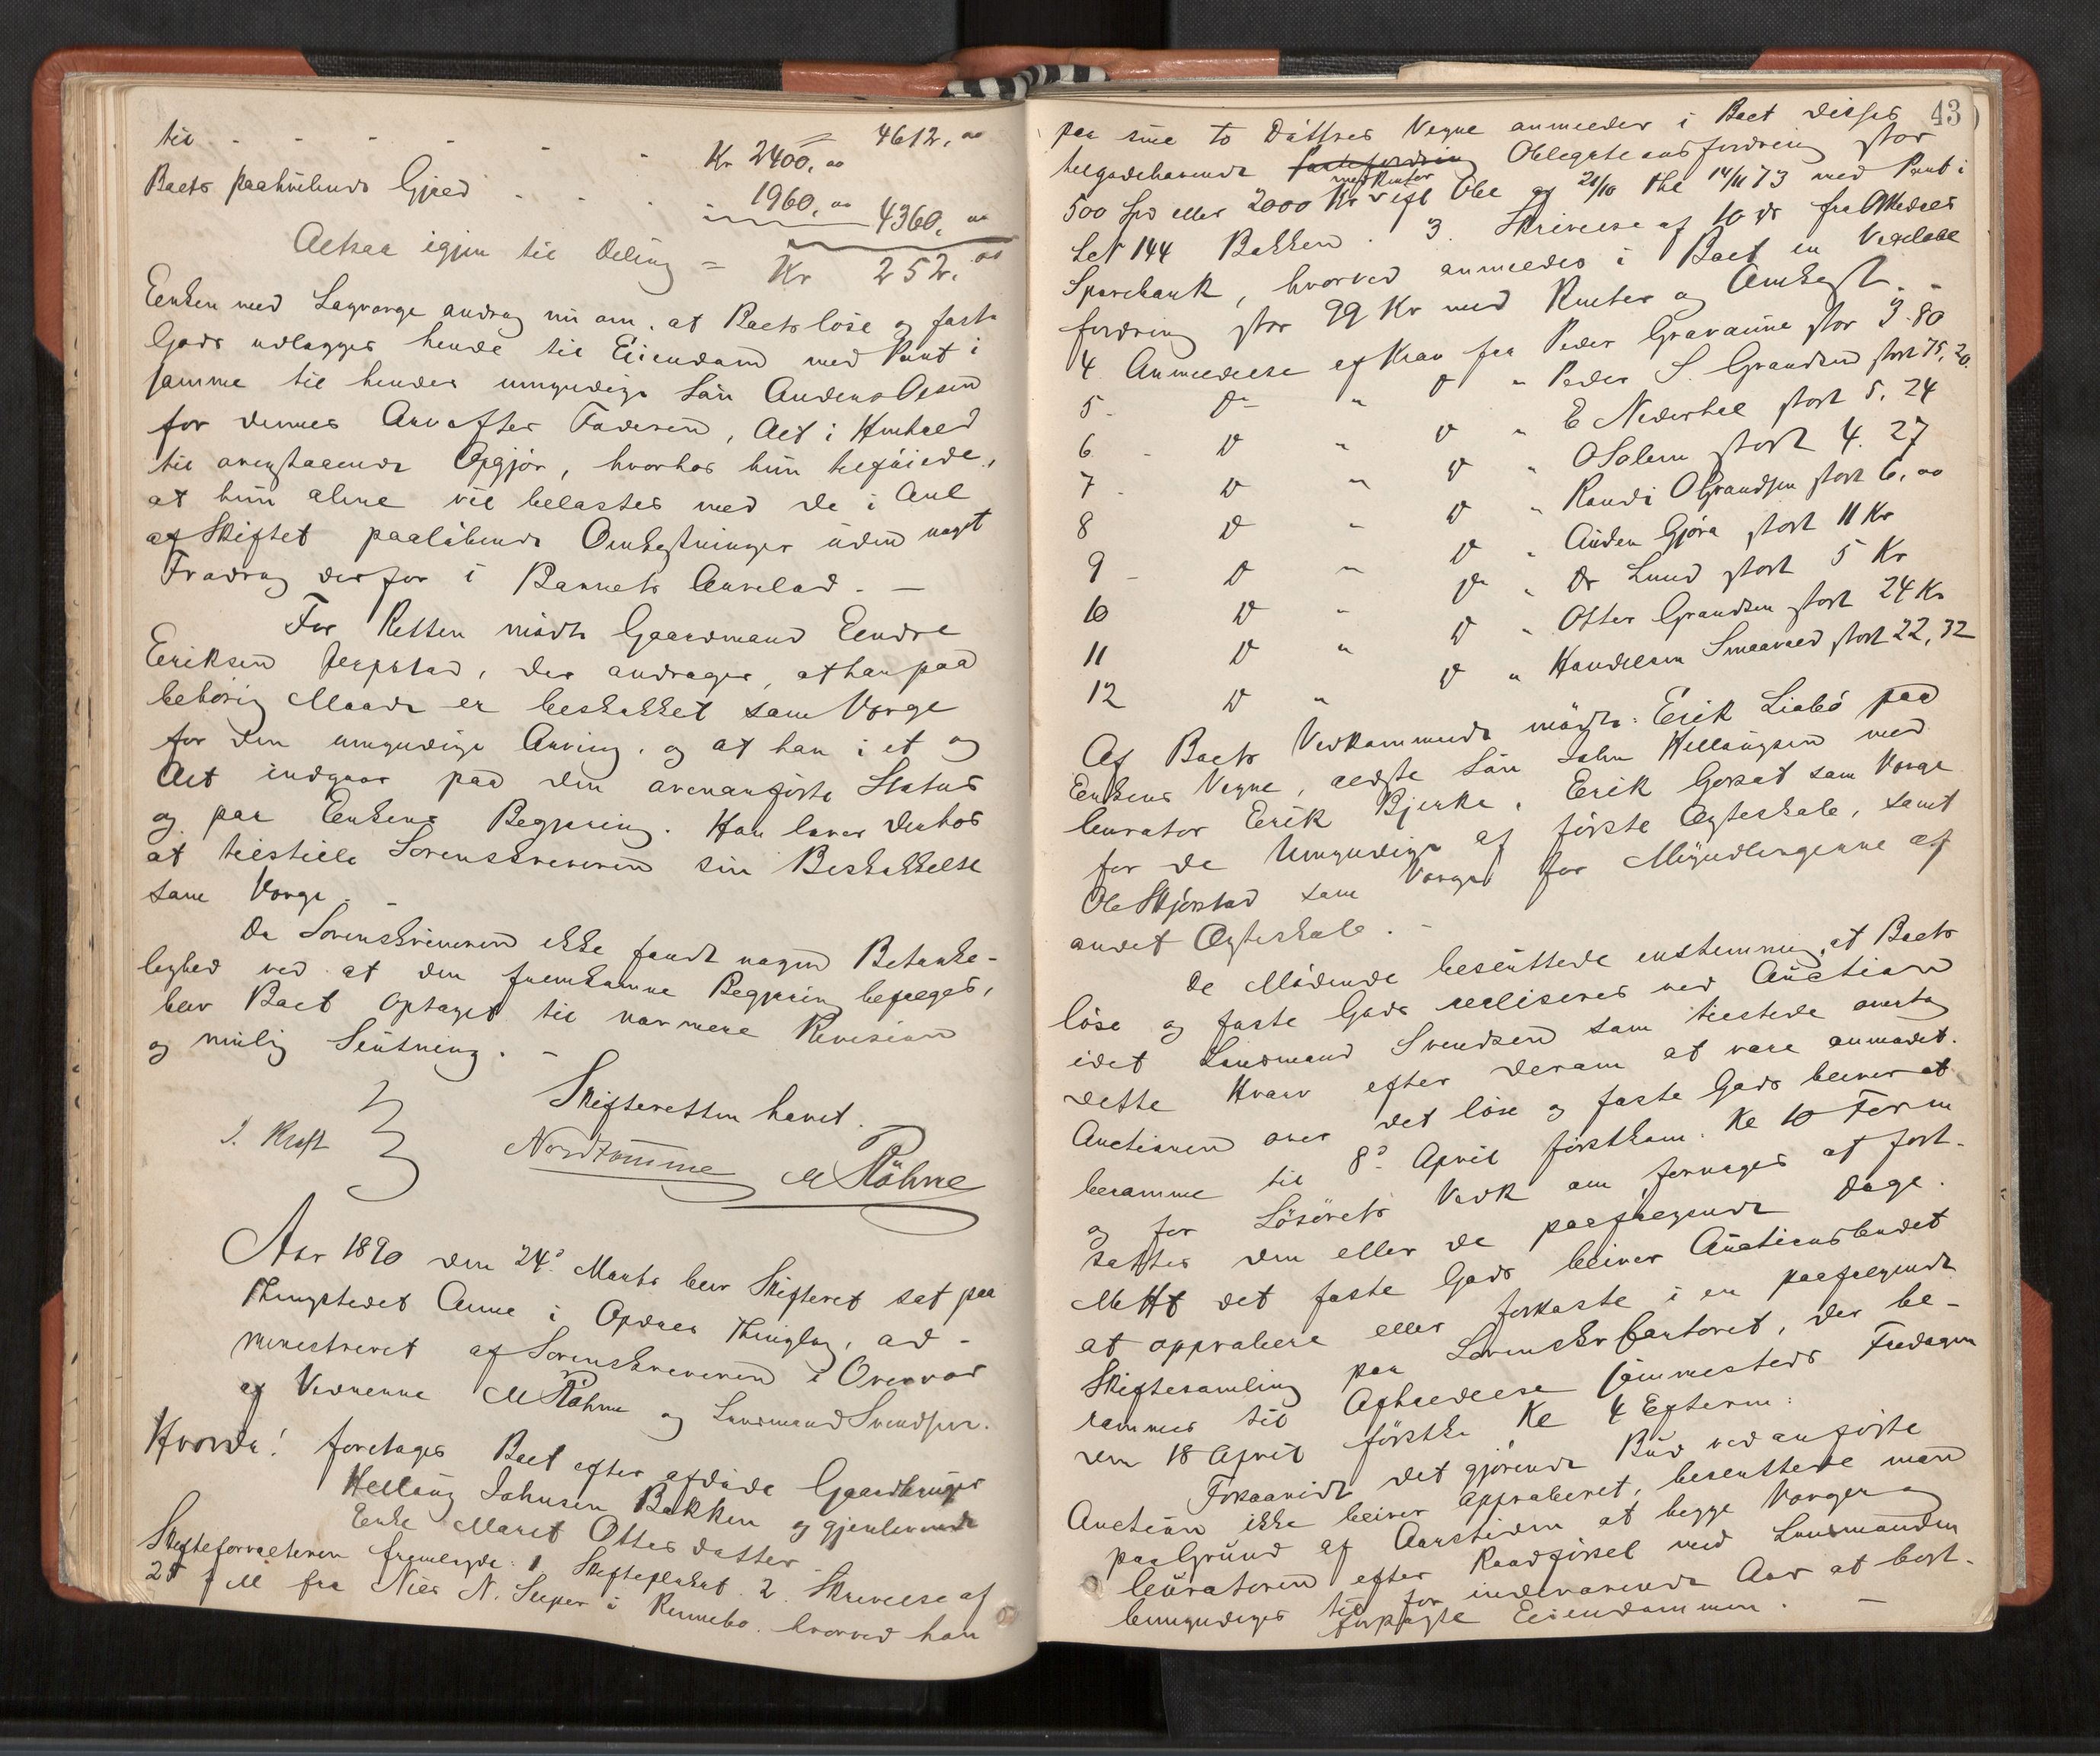 til - - - - - - Kr 2400,00 4612,00
Boets paahvilende Gjæld - - - 1960,00 4360,00
Altsaa igjen til Deling = Kr 252,00
Enken med Lagværge androg nu om, at Boets løse og faste
Gods udlægges hende til Eiendom med Pant i
samme til hendes umyndige Søn Anders Olsen
for dennes Arv efter Faderen, Alt i Henhold
til ovenstaaende Opgjør, hvorhos hun tilføiede,
at hun alene vil belastes med de i Anl
af Skiftet paaløbende Omkostninger uden noget
Fradrag derfor i Barnets Arvelod. —
For Retten mødte Gaardmand Endre
Eeriksen, der andrager, at han paa
behørig Maade er beskikket som Værge
for den umyndige Arving, og at han i et og
Alt indgaar paa den ovenanførte Status
og paa Enkens Begjæring. Han lover derhos
at tilstille Sorenskriveren sin Beskikkelse
som Værge. -
Da Sorenskriveren ikke fandt nogen Betænke-
lighed ved at den fremkomne Begjæring befølges,
blev Boet optaget til nærmere Revision
og mulig Slutning. -
Skifteretten hævet.
J. Kraft Nordtømme M Røhne
Aar 1890 den 24de Marts blev Skifteret sat paa
Thingstedet Aune i Opdals Thinglag, ad-
ministreret af Sorenskriveren i Overvær
af Vidnerne M Røhne og Lensmand Svendsen.
Hvorda! foretages Boet efter afdøde Gaardbruger
Hellaug Johnsen Bakken og gjenlevende
Enke Marit Ottersdatter
Skifteforvalteren fremlagde: 1 Skifteplakat. 2. Skrivelse af
25 f M fra Nils N. Seeper i Rennebo. hvorved han
43
paa sine to Døttres Vegne anmelder i Boet disses
tilgodehavende Obligationsfordring stor
500 Spd eller 2000 Kr med Renter ifl Obl af 21/10 thl 14/11 73 med Pant i
LN 144 Bakken. 3. Skrivelse af 10 ds fra Opdals
Sparebank, hvorved anmeldes i Boet en Vexelobl
fordring stor 99 Kr med Renter og Omkost. -
4 Anmeldelse af Krav fra Peder Gravaune stor 3.80
5 - Do - " D " Peder S. Grandsen stort 75,20.
6 - D " D " E Nederhol stort 5,24
7 - D " D " O Solem stort 4.27
8 D " D " Randi O Grandsen stort 6,00
9 - D " D " Auden Gjøra stort 11 Kr
10 D " D " Dr Lund stort 5 Kr
11 D " D " Otter Grandsen stort 24 Kr
12 D " D " Handelsm Smaavold stort 22,32
Af Boets Vedkommende mødte: Erik Liabø paa
Enkens Vegne, ældste Søn John Hellaugsen med
Curator Erik Bjerke. Erik Gorset som Værge
for de Umyndige af første Ægteskab, samt
Ole Skjørstad som Værge for Myndlingerne af
andet Ægteskab. -
De Mødende besluttede enstemmig, at Boets
løse og faste Gods realiseres ved Auction
idet Lensmand Svendsen som tilstede overtog
dette Hverv efter derom at være anmodet.
Auctionen over det løse og faste Gods bliver at
beramme til 8de April førstkom. Kl 10 Form
og for Løsørets Vedk om fornøges at fort-
sættes den eller de paafølgende Dage.
M Ht det faste Gods bliver Auctionsbudet
at approbere eller forkaste i en paafølgende
Skiftesamling paa Sorenskr Contoret, der be-
rammes til Afholdelse sammesteds Fredagen
den 18 April førstk Kl 4 Efterm:
Forsaavidt det gjørende Bud ved anførte
Auction ikke bliver approberet, besluttede man
paa Grund af Aarstiden at begge Værger og
Curatoren efter Raadførsel med Lensmanden
bemyndiges til for indeværende Aar at bort-
forpagte Eiendommen. —